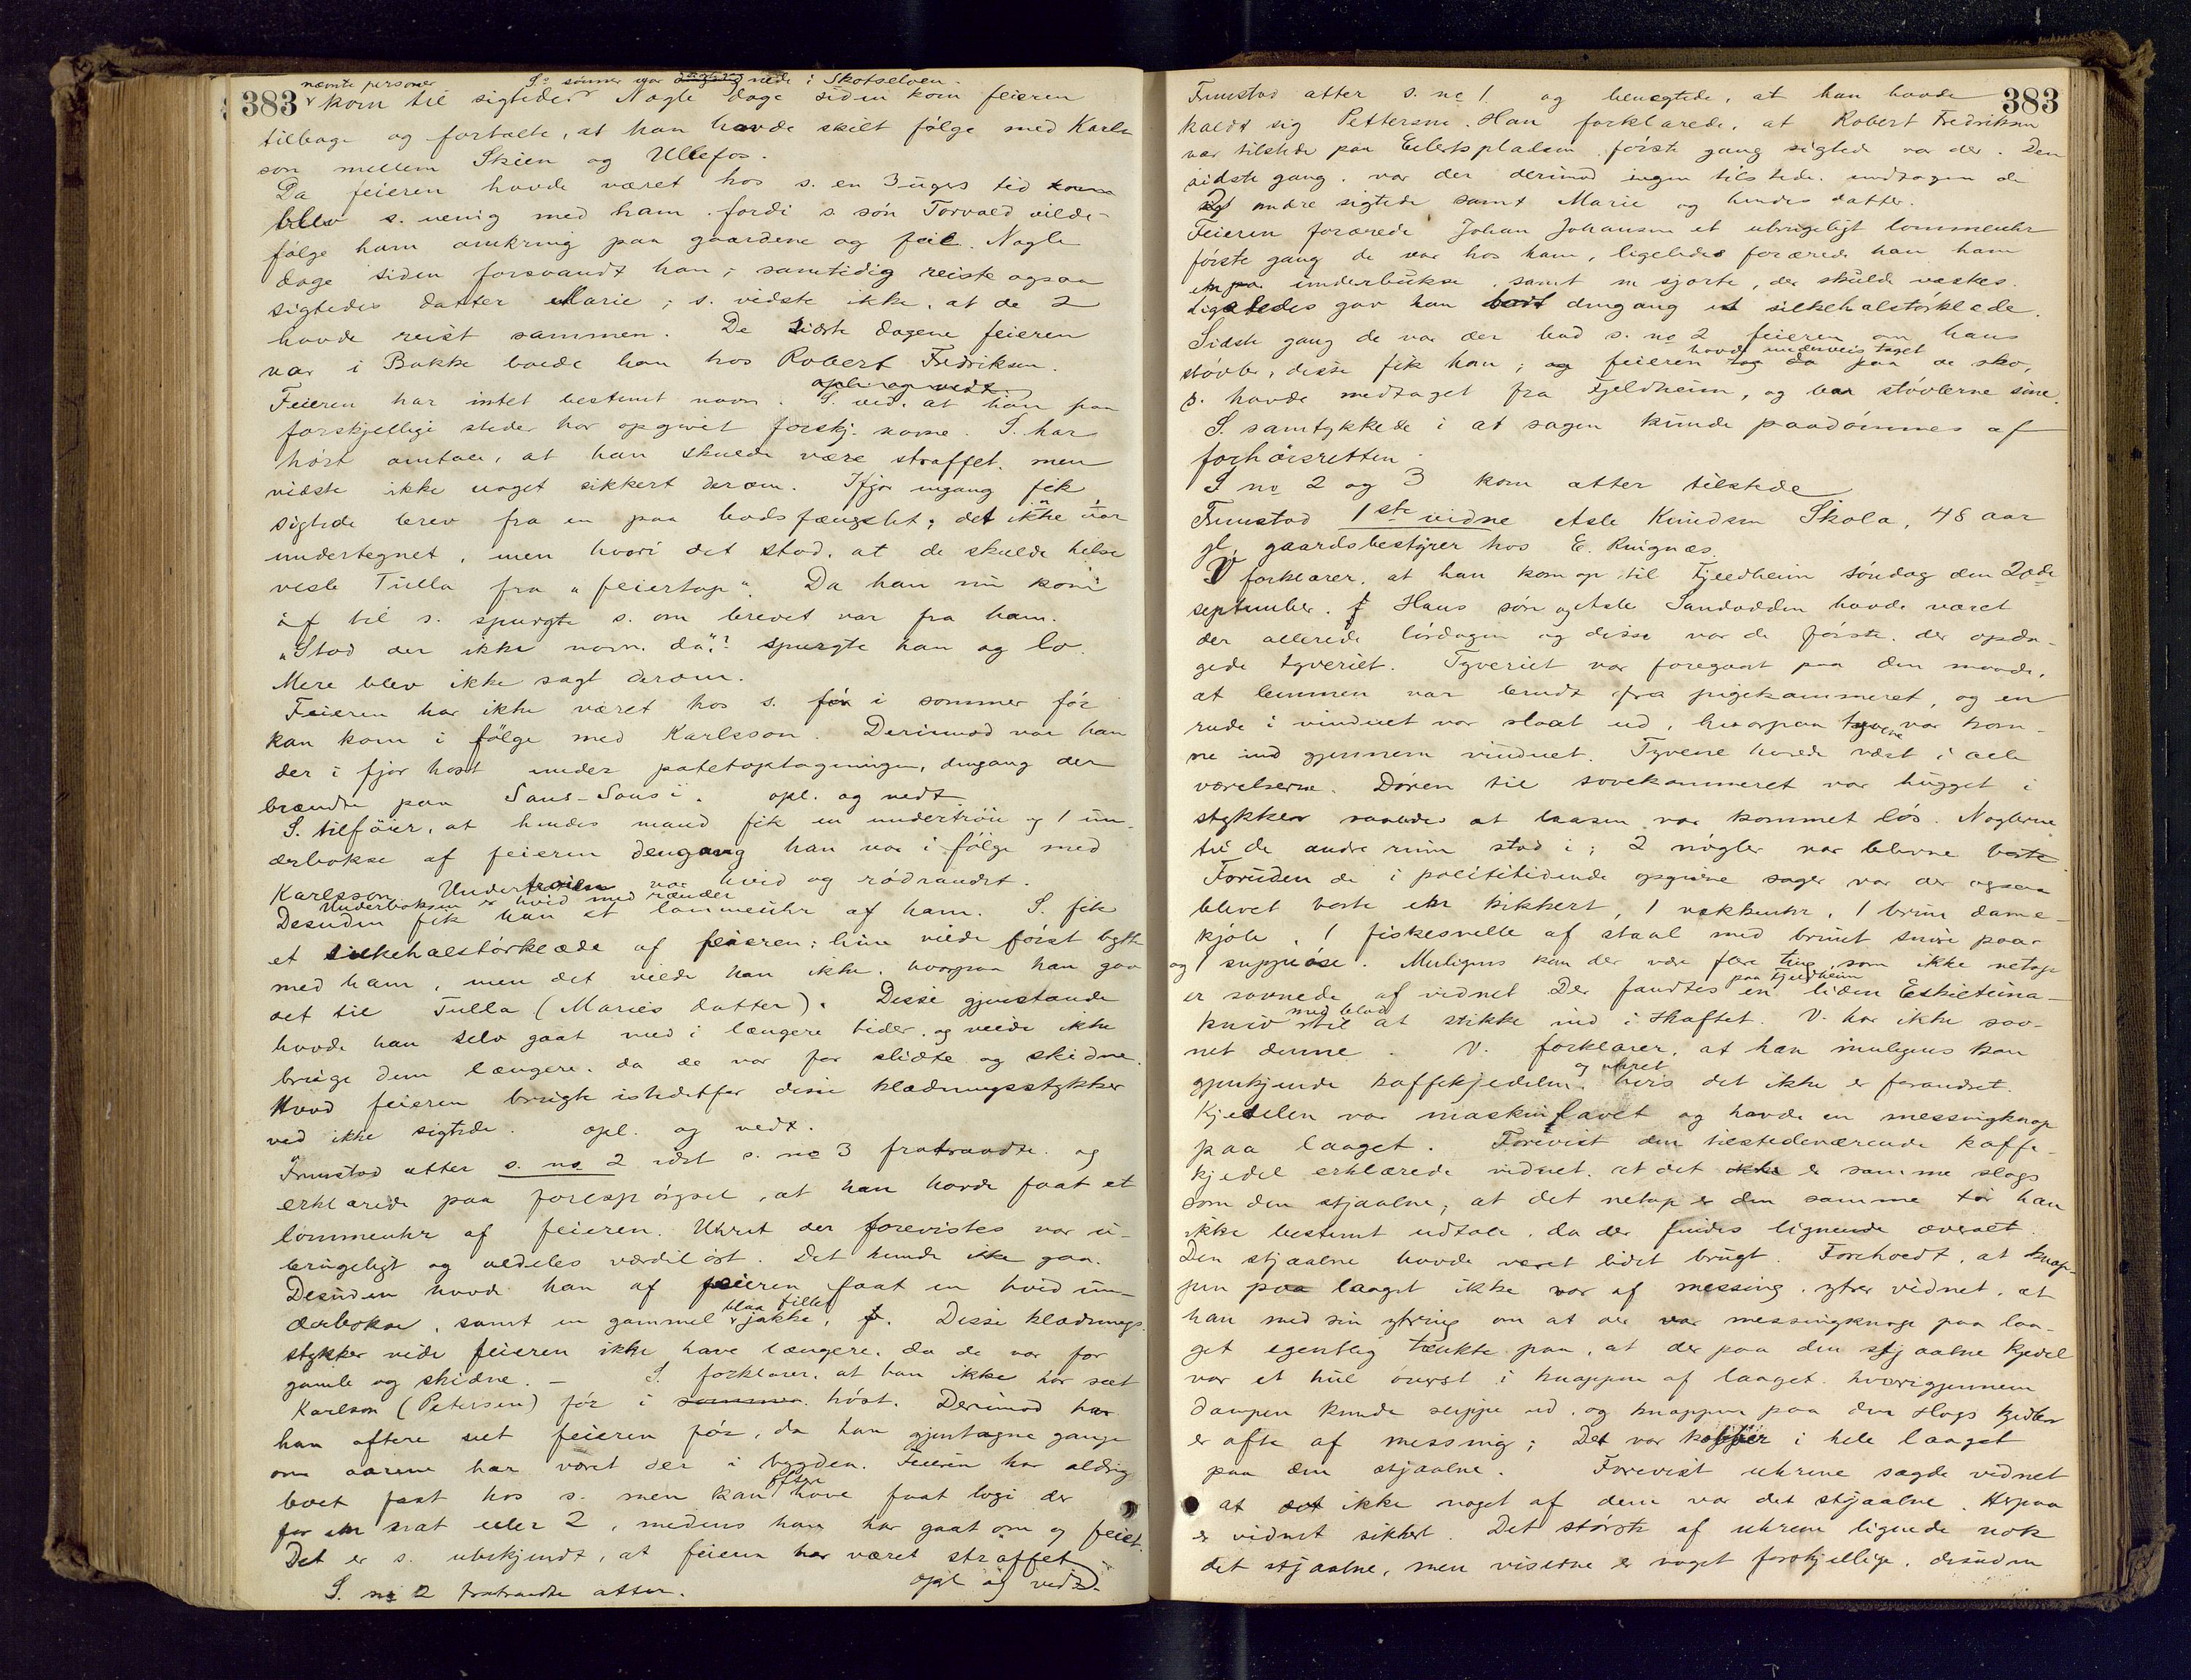 383
nævnte personer S's sønner var nede i Skotselven.
kom til sigtede. Nogle dage siden kom feieren
tilbage og fortalte, at han havde skilt følge med Karls
son mellem Skien og Ullefos.
Da feieren havde været hos s. en 3 uges tid
blev s. uenig med ham, fordi s. søn Torvald vilde
følge ham omkring paa gaardene og feie. Nogle
dage siden forsvandt han; samtidig reiste ogsaa
sigtedes datter Marie; s. vidste ikke, at de 2
havde reist sammen. De sidste dagene feieren
var i Bakke boede han hos Robert Fredriksen.
opl. og vedt.
Feieren har intet bestemt navn. S. ved, at han paa
forskjellige steder har opgivet forskj. navne. S. har
hørt omtale, at han skulde være straffet, men
vidste ikke noget sikkert derom. Ifjor engang fik
sigtede brev fra en paa bodsfængslet; det ikke var
undertegnet, men hvori det stod, at de skulde helse
vesle Tulla fra "feiertap". Da han nu kom
af til s. spurgte s. om brevet var fra ham.
"Stod der ikke navn da"? spurgte han og lo.
Mere blev ikke sagt derom.
Feieren har ikke været hos s. før i sommer før
han kom i følge med Karlsson. Derimod var han
der i fjor høst under potetoptagningen, dengang der
brændte paa Sans-Sousi. opl. og vedt.
S. tilføier, at hendes mand fik en undertrøie og 1 un-
derbokse af feieren dengang han var i følge med
Karlsson. Undertrøien var hvid og rødrandet.
Underboksen er hvid med rænder
Desuden fik han et lommeuhr af ham. S. fik
et silkehalstørklæde af feieren; hun vilde først bytte
med ham, men det vilde han ikke, hvorpaa han gav
det til Tulla (Maries datter). Disse gjenstande
havde han selv gaat med i længere tider, og vilde ikke
bruge dem længere, da de var for slidte og skidne.
Hvad feieren brugte istedetfor disse klædningsstykker
ved ikke sigtede. opl. og vedt.
Fremstod atter s. no 2 idet s. no 3 fratraadte og
erklærede paa forespørgsel, at han havde faat et
lommeuhr af feieren. Uhret der forevistes var u-
brugeligt og aldeles værdiløst. Det kunde ikke gaa.
Desuden havde han af feieren faat en hvid un-
derbokse, samt en gammel blaa fillet jakke. Disse klædnings-
stykker vilde feieren ikke have længere, da de var for
gamle og skidne. – S. forklarer, at han ikke har seet
Karlson (Petersen) før i sommer høst. Derimod har
han oftere seet feieren før, da han gjentagne gange
om aarene har været der i bygden. Feieren har aldrig
boet fast hos s. men kan ofte have faat logi der
for en nat eller 2, medens han har gaat om og feiet.
Det er s. ubekjendt, at feieren har været straffet
S. no 2 fratraadte atter. opl. og vedt.
383
Fremstod atter s. no 1 og benegtede, at han havde
kaldt sig Pettersen. Han forklarede, at Robert Fredriksen
var tilstede paa Eilertspladsen første gang sigtede var der. Den
sidste gang var der derimod ingen tilstede undtagen de
andre sigtede samt Marie og hendes datter.
Feieren forærede Johan Johansen et ubrugeligt lommeuhr
første gang de var hos ham, ligeledes forærede han ham
en par underbukse samt en sjorte, der skulde vaskes.
Ligeledes gav han bort dengang et silkehalstørklæde.
Sidste gang de var der bad s. no 2 feieren om hans
støvler, disse fik han; og feieren havde underveis taget paa de sko,
s. havde medtaget fra Fjeldheim, og bar støvlerne sine.
S samtykkede i at sagen kunde paadømmes af
forhørsretten.
S no 2 og 3 kom atter tilstede
Fremstod 1ste vidne Asle Knudsen Skola, 48 aar
gl. gaardsbestyrer hos E. Ringnæs.
V forklarer, at han kom op til Fjeldheim søndag den 20de
september. Hans søn og Asle Sandodden havde været
der allerede lørdagen og disse var de første, der opda-
gede tyveriet. Tyveriet var foregaat paa den maade,
at lemmen var brudt fra pigekammeret, og en
rude i vinduet var slaat ud, hvorpaa tyvene var kom-
ne ind gjennem vinduet. Tyvene havde vært i alle
værelserne. Døren til sovekammeret var hugget i
stykker saaledes at laasen var kommet løs. Nøglerne
til de andre rum stod i; 2 nøgler var blevne borte
Foruden de i polititidende opgivne sager var der ogsaa
blevet borte en kikkert, 1 vækkeuhr, 1 brun dame-
kjole, 1 fiskesnelle af staal med brunt snøre paa
og 1 suppeøse. Muligens kan der være flere ting, som ikke netop
er savnede af vidnet Der fandtes paa Fjeldheim en liden Eskilstuna-
kniv med blad til at stikke ind i skaftet. V. har ikke sav-
net denne. V. forklarer, at han muligens kan
gjenkjende kaffekjedelen og uhret hvis det ikke er forandret.
Kjedelen var maskinlavet og havde en messingknap
paa laaget. Forevist den tilstedeværende kaffe-
kjedel erklærede vidnet, at det ikke er samme slags
som den stjaalne; at det netop er den samme tør han
ikke bestemt udtale, da der findes lignende overalt.
Den stjaalne havde været lidet brugt. Foreholdt, at knap-
pen paa laaget ikke var af messing, ytrer vidnet, at
han med sin ytring om at der var messingknap paa laa-
get egentlig tænkte paa, at der paa den stjaalne kjedel
var et hul øverst i knappen af laaget, hvorigjennem
dampen kunde slippe ud, og knappen paa den slags kjedler
er ofte af messing; Det var kobber i hele laaget
paa den stjaalne. Forevist uhrene sagde vidnet
at det ikke noget af dem var det stjaalne. Herpaa
er vidnet sikkert. Det største af uhrene lignede nok
det stjaalne, men viserne er noget forskjellige, desuden